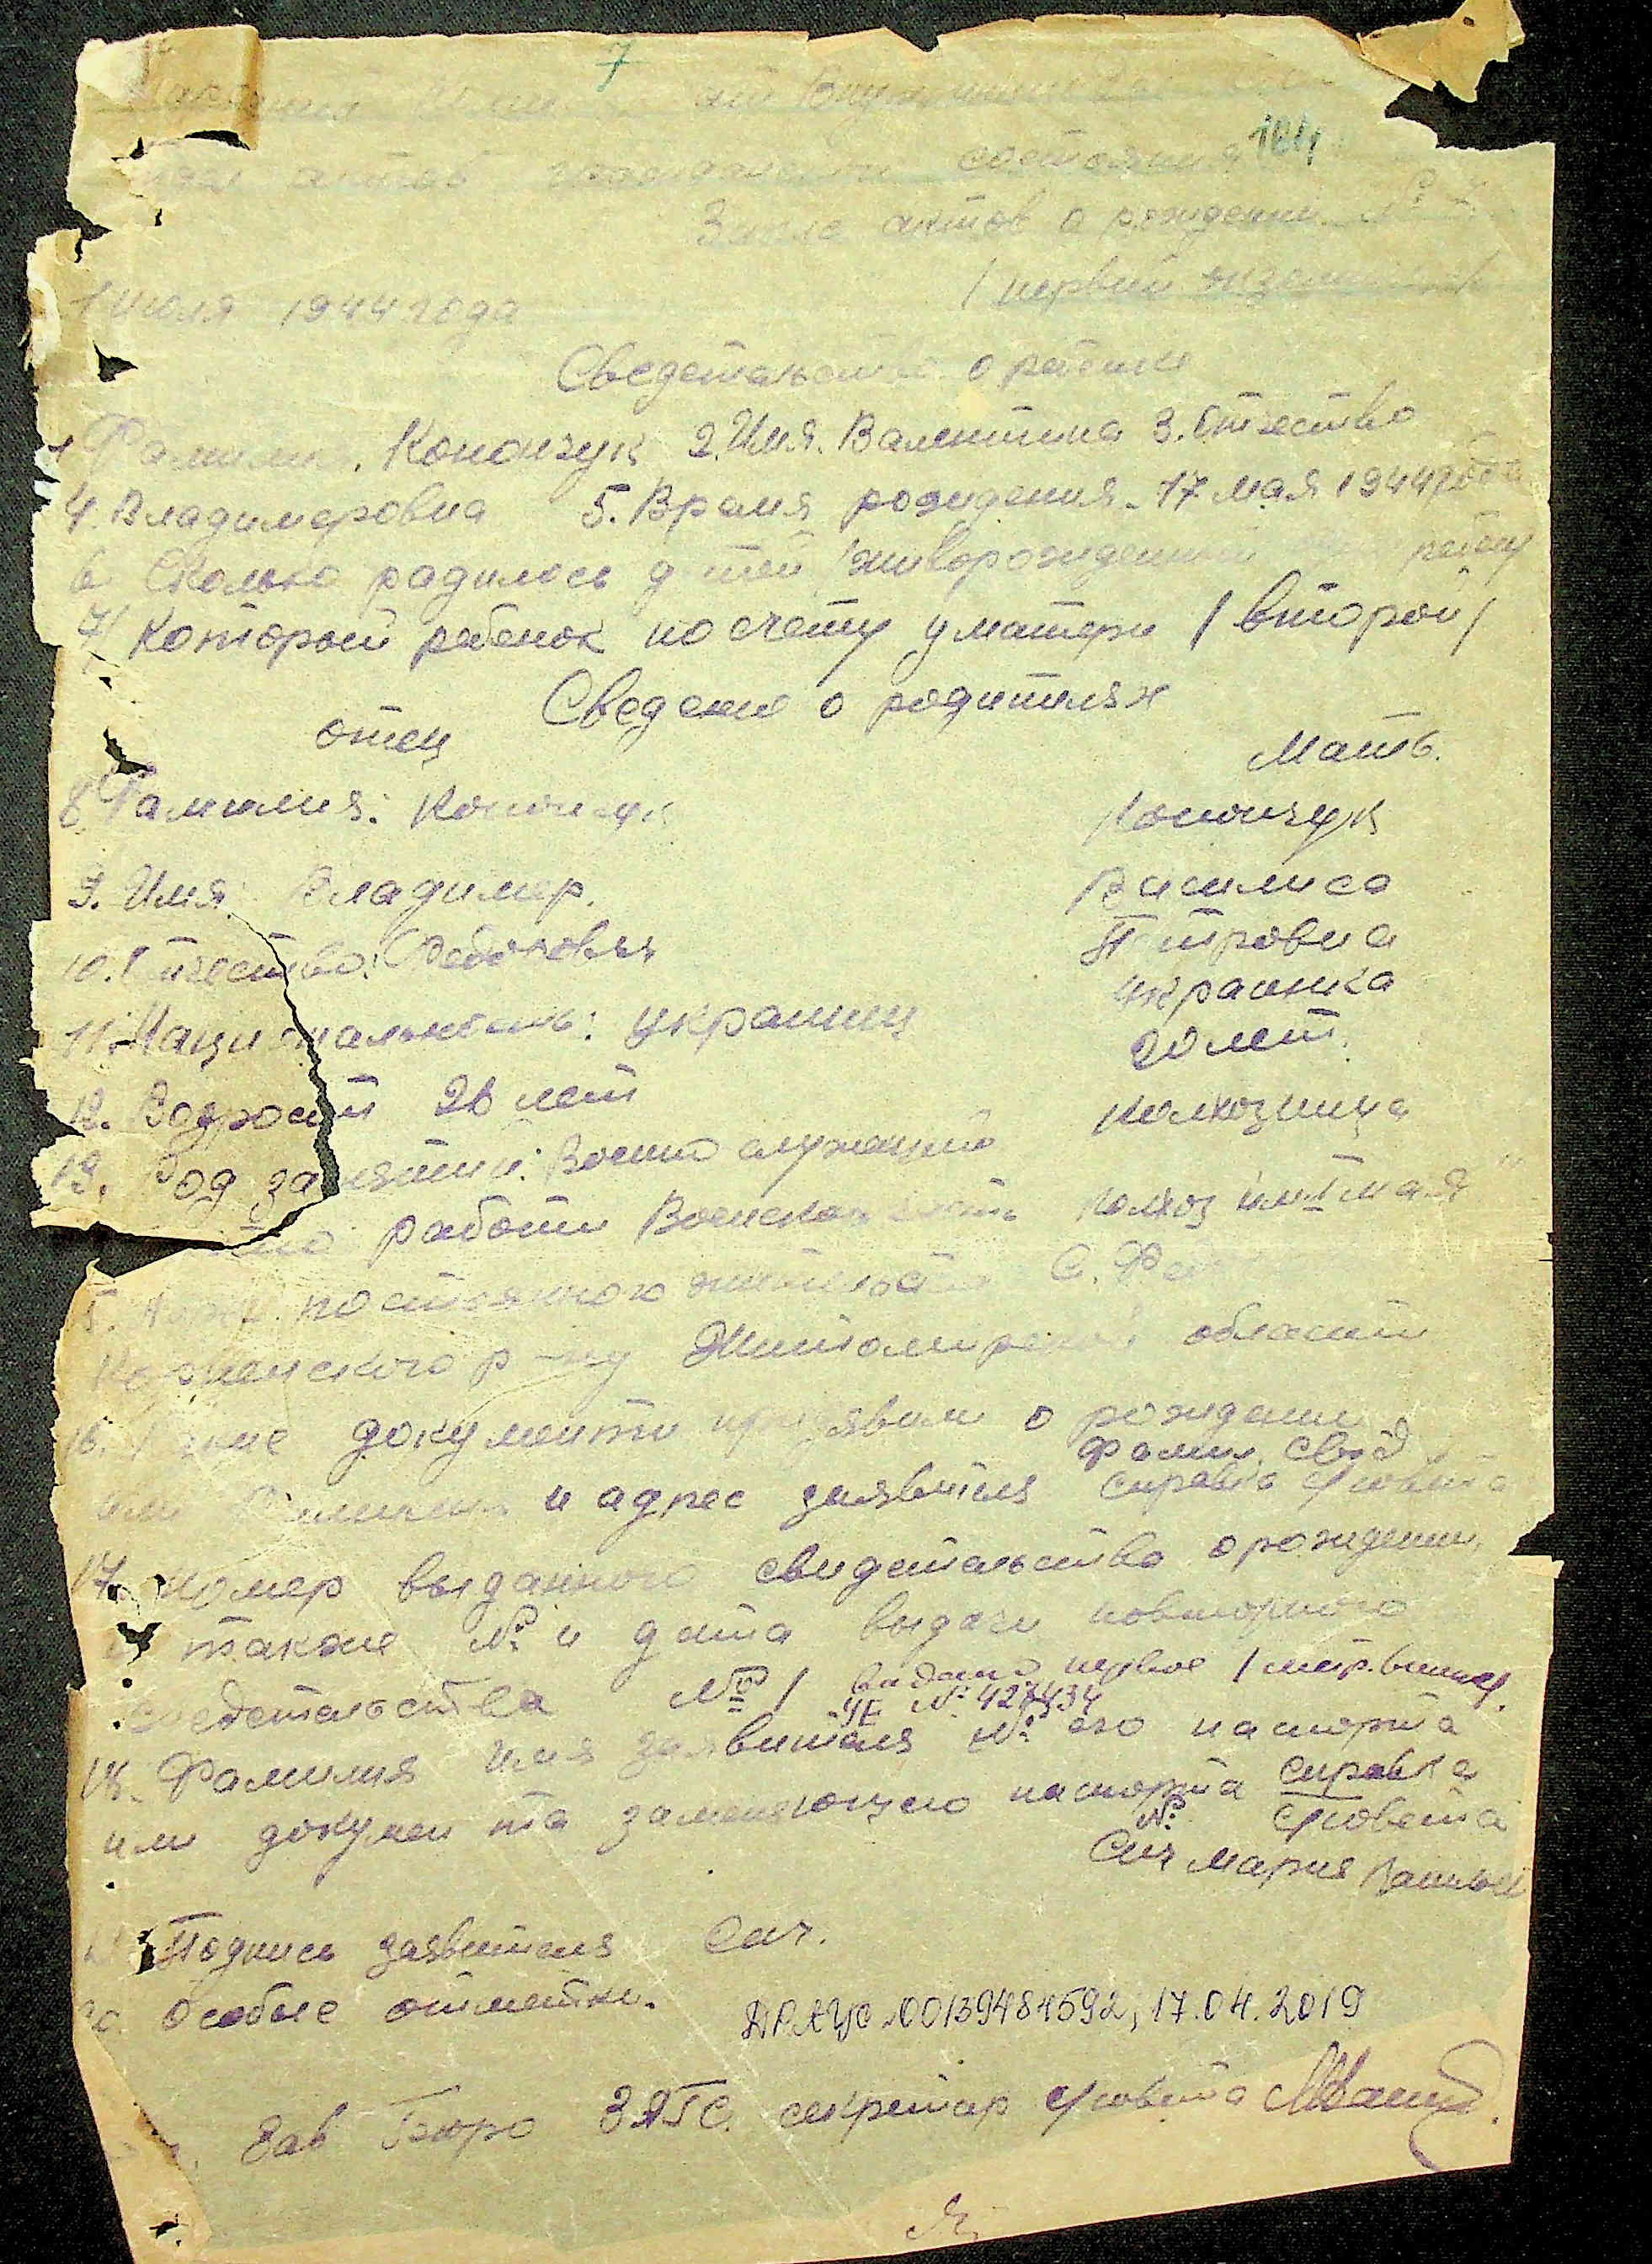 7
184
актов гражданского состояния
Запись актов о рождении №
1 июля 1944 года / первый экземпляр /
Сведетельство о ребенке
1 Фамилия. Конончук 2. Имя. Валентина 3. Отчество
4. Владимеровна 5. Время рождения. 17 мая 1944 года
6 Сколько радилось детей живорожденный
7/ Который ребенок по счету у матери / второй /
Сведение о родителях
отец Мать.
8 Фамилия: Конончук Конончук
9. Имя: Владимер. Василиса
10. Отчество: Петровна
11. Национальность: украинец украинка
12. Возраст 26 лет 20 лет.
13. Род занятий: Военнослужащий колхозница
работи Воинская часть колхоз им "1 мая"
5. постоянного жительства С.
р-ну Житомирской области
16. Какие документи предявили о рождении
фамил. свид
или и адрес заявителя справка с/совета
17. номер выданного свидетельства о рождении,
а также № и дата выдачи повторного
сведетельства № 1 видано первое
ЧЕ № 427434
18. Фамилия имя заявителя № его паспорта
или документа заменяющего паспорта справка
№ с/совета
Сич Мария
Подпись заявителя Сич.
20. Особые отметки.
ДРАЦС 00139484592, 17.04.2019
Зав Бюро ЗАГС. секретар с/совета